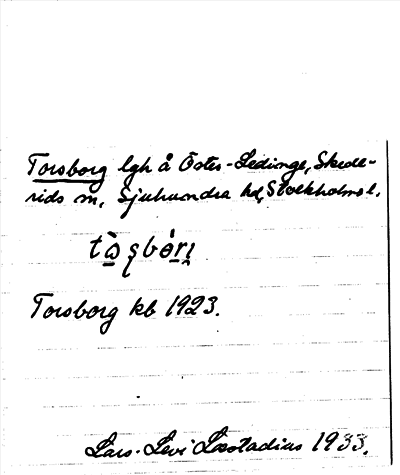 Torsborg lgh å Östes-Ledinge, Skede-
rids sn, Sjuhundra hd, Stockholms l.
Torsborg kb 1923.
Lars-Levi Læstadius 1933.